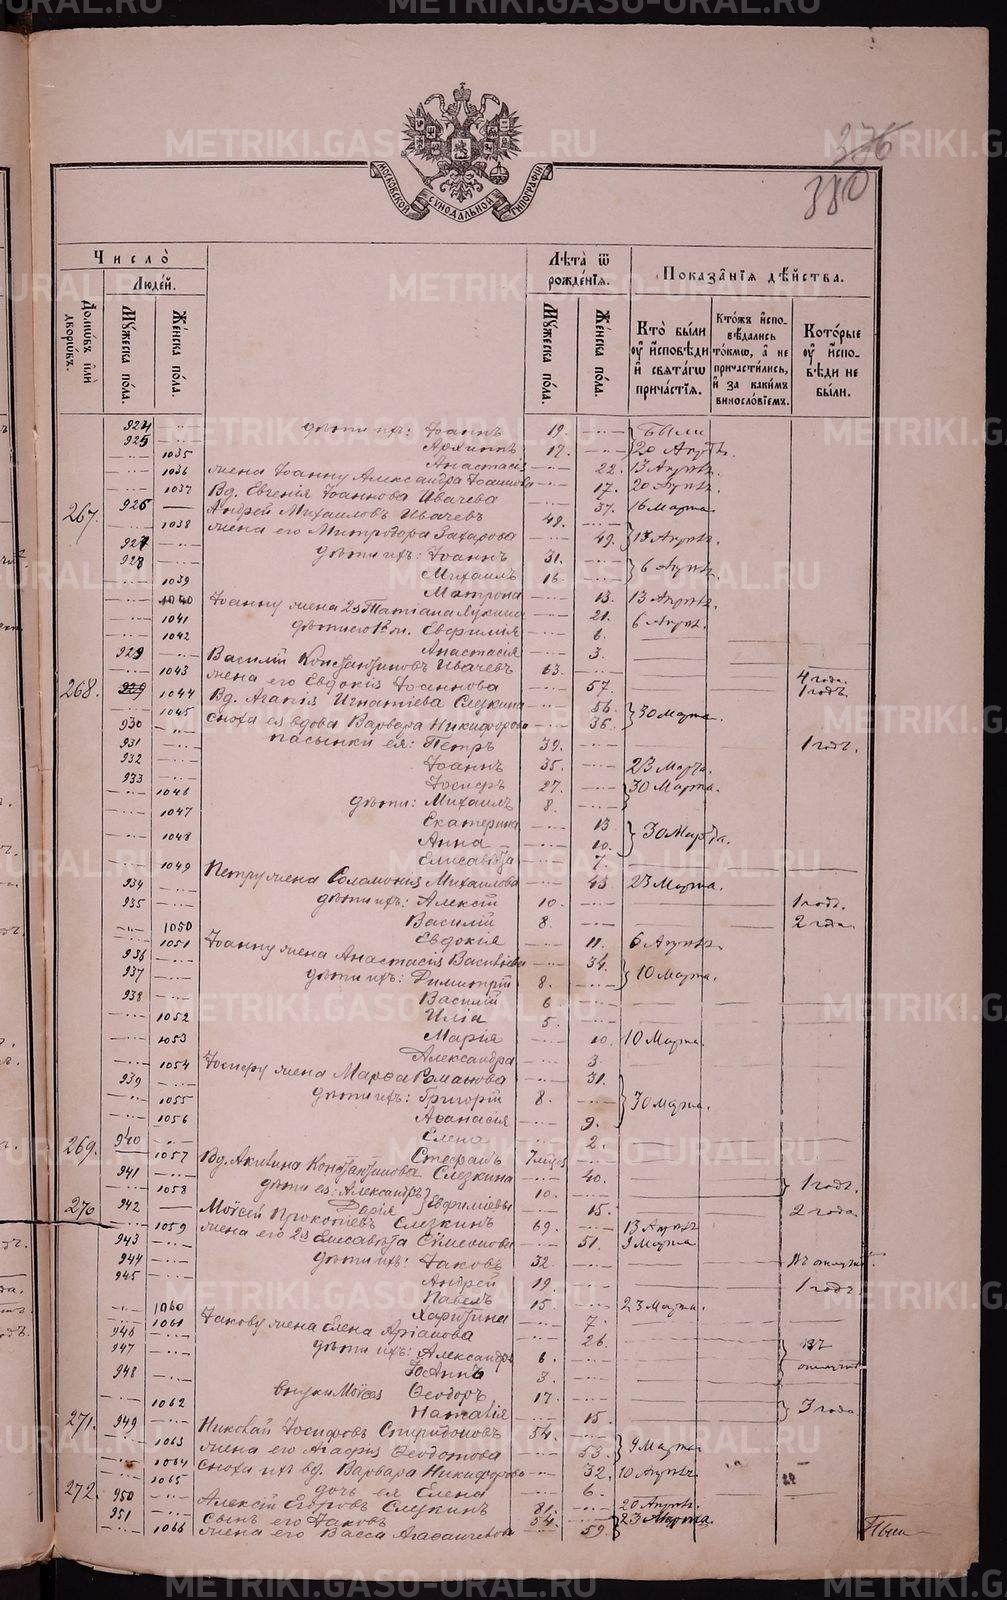 276
380
МОСКОВСКОЙ СѴНОДАЛЬНОЙ ТИПОГРАФІИ
Число̀
Людей.
Домѡвъ илѝ дворѡвъ.
Мꙋжеска пола.
Женска пола.
Лѣта ѿ рожденїѧ.
Мꙋжеска пола.
Женска пола.
Показанїѧ дѣйства.
Кто̀ были оу̓ исповѣди и свѧтагѡ причастїѧ.
Ктожъ исповѣдались токмѡ, а не причастились, и за какимъ винословїемъ.
Которые оу̓ исповѣди не были.
924 дѣти ихъ: Іоаннъ 19. Были
925 Архиппъ 17. 20 Апрѣл.
1035 Анастасія 22. 13 Апрѣл.
1036 жена Іоанну Александра Іоаннова 17. 20 Апрѣл.
1037 Вд. Евгенія Іоаннова Ивачева 37. 16 Марта.
267. 926 Андрей Михаиловъ Ивачевъ 49.
1038 жена его Митродора Захарова 49. 13 Апрѣл.
927 дѣти ихъ: Іоаннъ 31.
928 Михаилъ 16. 6 Апрѣл.
1039 Матрона 13. 13 Апрѣл.
1040 Іоанну жена 2я Татіана Лукина 21. 6 Апрѣл.
1041 дѣти его 1го м. Евфимія 6.
1042 Анастасія 3.
929 Василій Константиновъ Ивачевъ 63. 4 года.
1043 жена его Евдокія Іоаннова 57. 1 годъ.
268. 1044 Вд. Агапія Игнатіева Слѣзкина 56.
1045 Сноха ея вдова Варвара Никифорова 36. 30 Марта.
930 пасынки ея: Петръ 39. 1 годъ.
931 Іоаннъ 35. 23 Марта.
932 Іосифъ 27. 30 Марта.
933 дѣти: Михаилъ 8.
1046 Екатерина 13
1047 Анна 10. 30 Марта.
1048 Елисавета 7.
1049 Петру жена Соломонія Михаилова 43 23 Марта.
934 дѣти ихъ: Алексій 10. 1 годъ.
935 Василій 8. 2 года.
1050 Евдокія 11. 6 Апрѣл.
1051 Іоанну жена Анастасія Васильева 34.
936 дѣти ихъ: Димитрій 8. 10 Марта.
937 Василій 6
938 Илія 5.
1052 Марія 10. 10 Марта.
1053 Александра 3.
1054 Іосифу жена Марѳа Романова 31.
939 дѣти ихъ: Григорій 8. 30 Марта.
1055 Аѳанасія 9.
1056 Елена 2.
269. 940 Стефанъ 7 мѣс
1057 Вд. Акилина Константинова Слезкина 40.
941 дѣти ея: Александръ 10. 1 годъ.
1058 Дарія Евфиміевы 15. 2 года
270 942 Моѵсей Прокопіевъ Слезкинъ 69. 13 Апрѣл
1059 жена его 2я Елисавета Сѵмеонова 51. 9 Марта
943 дѣти ихъ: Іаковъ 32.
944 Андрей 19. 1 годъ.
945 Павелъ 15 23 Марта.
1060 Харитина 7.
1061 Іакову жена Елена Аріанова 26.
946 дѣти ихъ: Александръ 6.
947 Іоаннъ 3.
948 внуки Моѵсея Ѳеодоръ 17.
1062 Наталія 15. 3 года
271. 949 Николай Іосифовъ Спиридоновъ 54.
1063 жена его Агафія Ѳеодотова 53. 9 Марта
1064 Сноха ихъ вд. Варвара Никифорова 32. 10 Апрѣл
1065 дочь ея Елена 6.
272. 950 Алексій Егоровъ Слезкинъ 81. 20 Апрѣл.
951 сынъ его Іаковъ 54. 23 Марта.
1066 жена его Васса Агафангелова 59.
METRIKI.GASO-URAL.RU